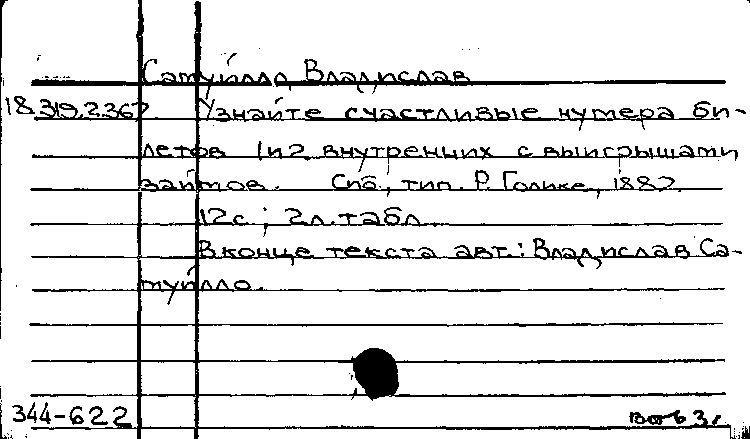 Сатуйлло, Владислав
18.319.2.367. Узнайте счастливые нумера би-
летов 1 и 2 внутренних с выигрышами
займов. Спб., тип. Р. Голике, 1887.
12 с.; 2 л. табл.
В конце текста авт.: Владислав Са-
туйлло.
344-622